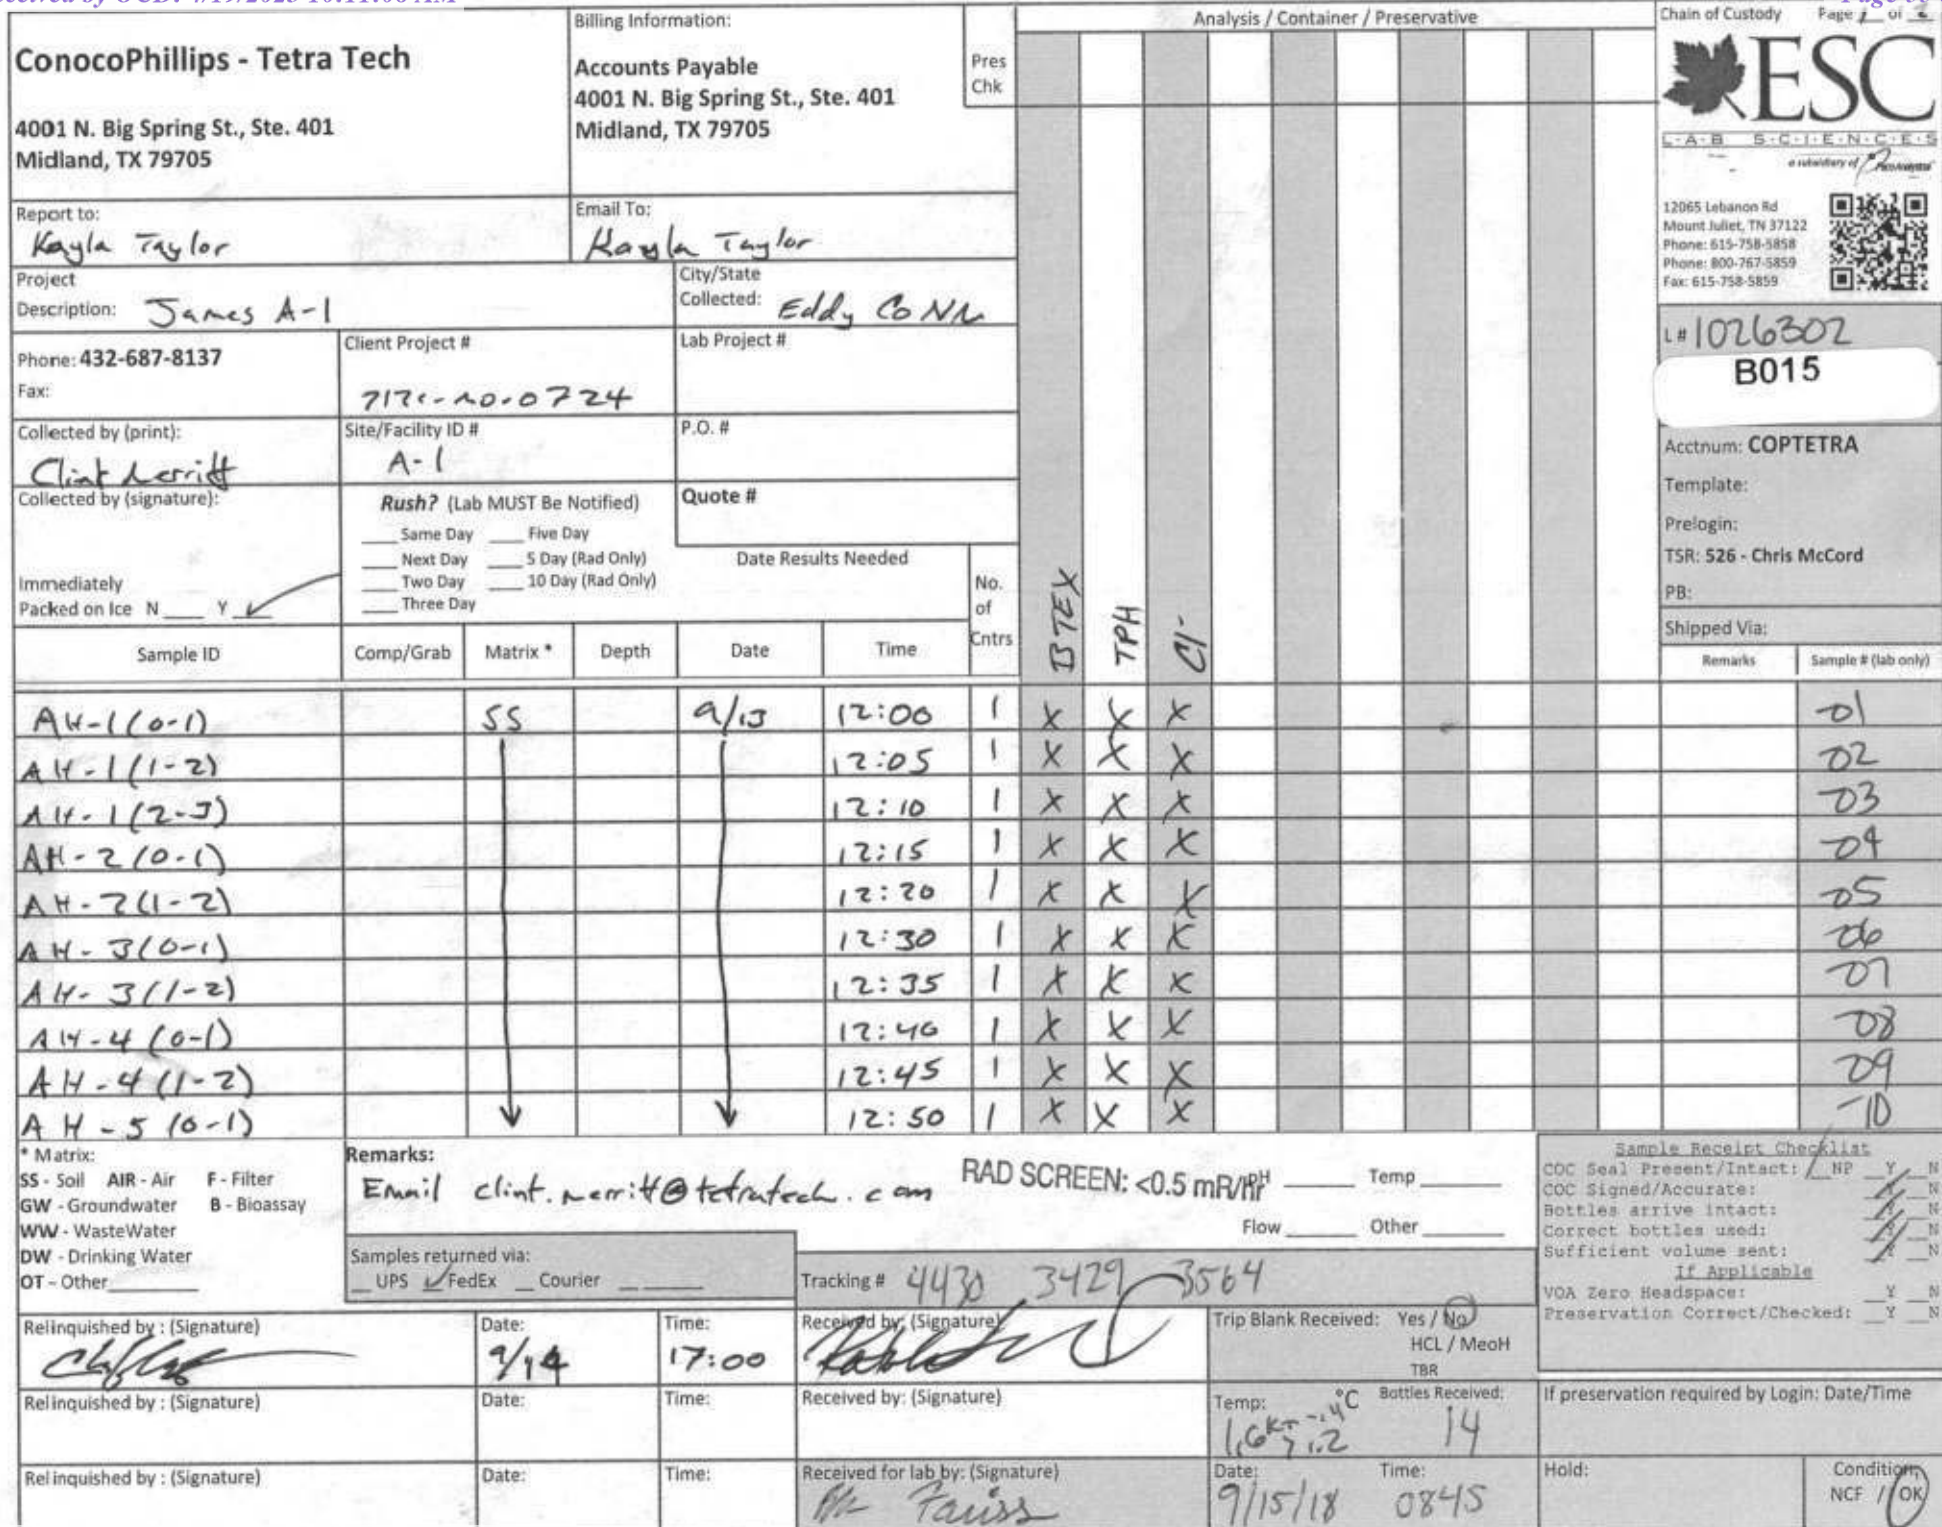 ConocoPhillips - Tetra Tech
4001 N. Big Spring St., Ste. 401
Midland, TX 79705
Billing Information:
Accounts Payable
4001 N. Big Spring St., Ste. 401
Midland, TX 79705
Pres
Chk
Analysis / Container / Preservative
Chain of Custody
ESC
L·A·B S·C·I·E·N·C·E·S
a subsidiary of
12065 Lebanon Rd
Mount Juliet, TN 37122
Phone: 615-758-5858
Phone: 800-767-5859
Fax: 615-758-5859
Report to:
Kayla Taylor
Email To:
Kayla Taylor
Project
Description: James A-1
City/State
Collected: Eddy Co NM
Phone: 432-687-8137
Fax:
Client Project #
Lab Project #
L # 1026302
B015
Collected by (print):
Clint Merritt
Site/Facility ID #
A-1
P.O. #
Acctnum: COPTETRA
Template:
Prelogin:
TSR: 526 - Chris McCord
PB:
Shipped Via:
Collected by (signature):
Rush? (Lab MUST Be Notified)
___ Same Day ___ Five Day
___ Next Day ___ 5 Day (Rad Only)
___ Two Day ___ 10 Day (Rad Only)
___ Three Day
Quote #
Date Results Needed
Immediately
Packed on Ice N ___ Y ✓
No.
of
Cntrs
BTEX
TPH
Cl-
Sample ID Comp/Grab Matrix * Depth Date Time Remarks Sample # (lab only)
AH-1 (0-1) SS 9/13 12:00 1 X X X -01
AH-1 (1-2) 12:05 1 X X X -02
AH-1 (2-3) 12:10 1 X X X -03
AH-2 (0-1) 12:15 1 X X X -04
AH-2 (1-2) 12:20 1 X X X -05
AH-3 (0-1) 12:30 1 X X X -06
AH-3 (1-2) 12:35 1 X X X -07
AH-4 (0-1) 12:40 1 X X X -08
AH-4 (1-2) 12:45 1 X X X -09
AH-5 (0-1) 12:50 1 X X X -10
* Matrix:
SS - Soil AIR - Air F - Filter
GW - Groundwater B - Bioassay
WW - WasteWater
DW - Drinking Water
OT - Other
Remarks:
Email clint.merritt@tetratech.com
RAD SCREEN: <0.5 mR/hr
Temp
Flow Other
Sample Receipt Checklist
COC Seal Present/Intact: NP Y N
COC Signed/Accurate: Y N
Bottles arrive intact: Y N
Correct bottles used: Y N
Sufficient volume sent: Y N
If Applicable
VOA Zero Headspace: Y N
Preservation Correct/Checked: Y N
Samples returned via:
UPS ✓ FedEx Courier
Tracking # 4430 3429 3564
Relinquished by : (Signature)
Date:
9/14
Time:
17:00
Received by: (Signature)
Trip Blank Received: Yes / No
HCL / MeoH
TBR
Relinquished by : (Signature)
Date:
Time:
Received by: (Signature)
Temp: °C
Bottles Received:
14
If preservation required by Login: Date/Time
Relinquished by : (Signature)
Date:
Time:
Received for lab by: (Signature)
Date:
9/15/18
Time:
0845
Hold:
Condition:
NCF / OK